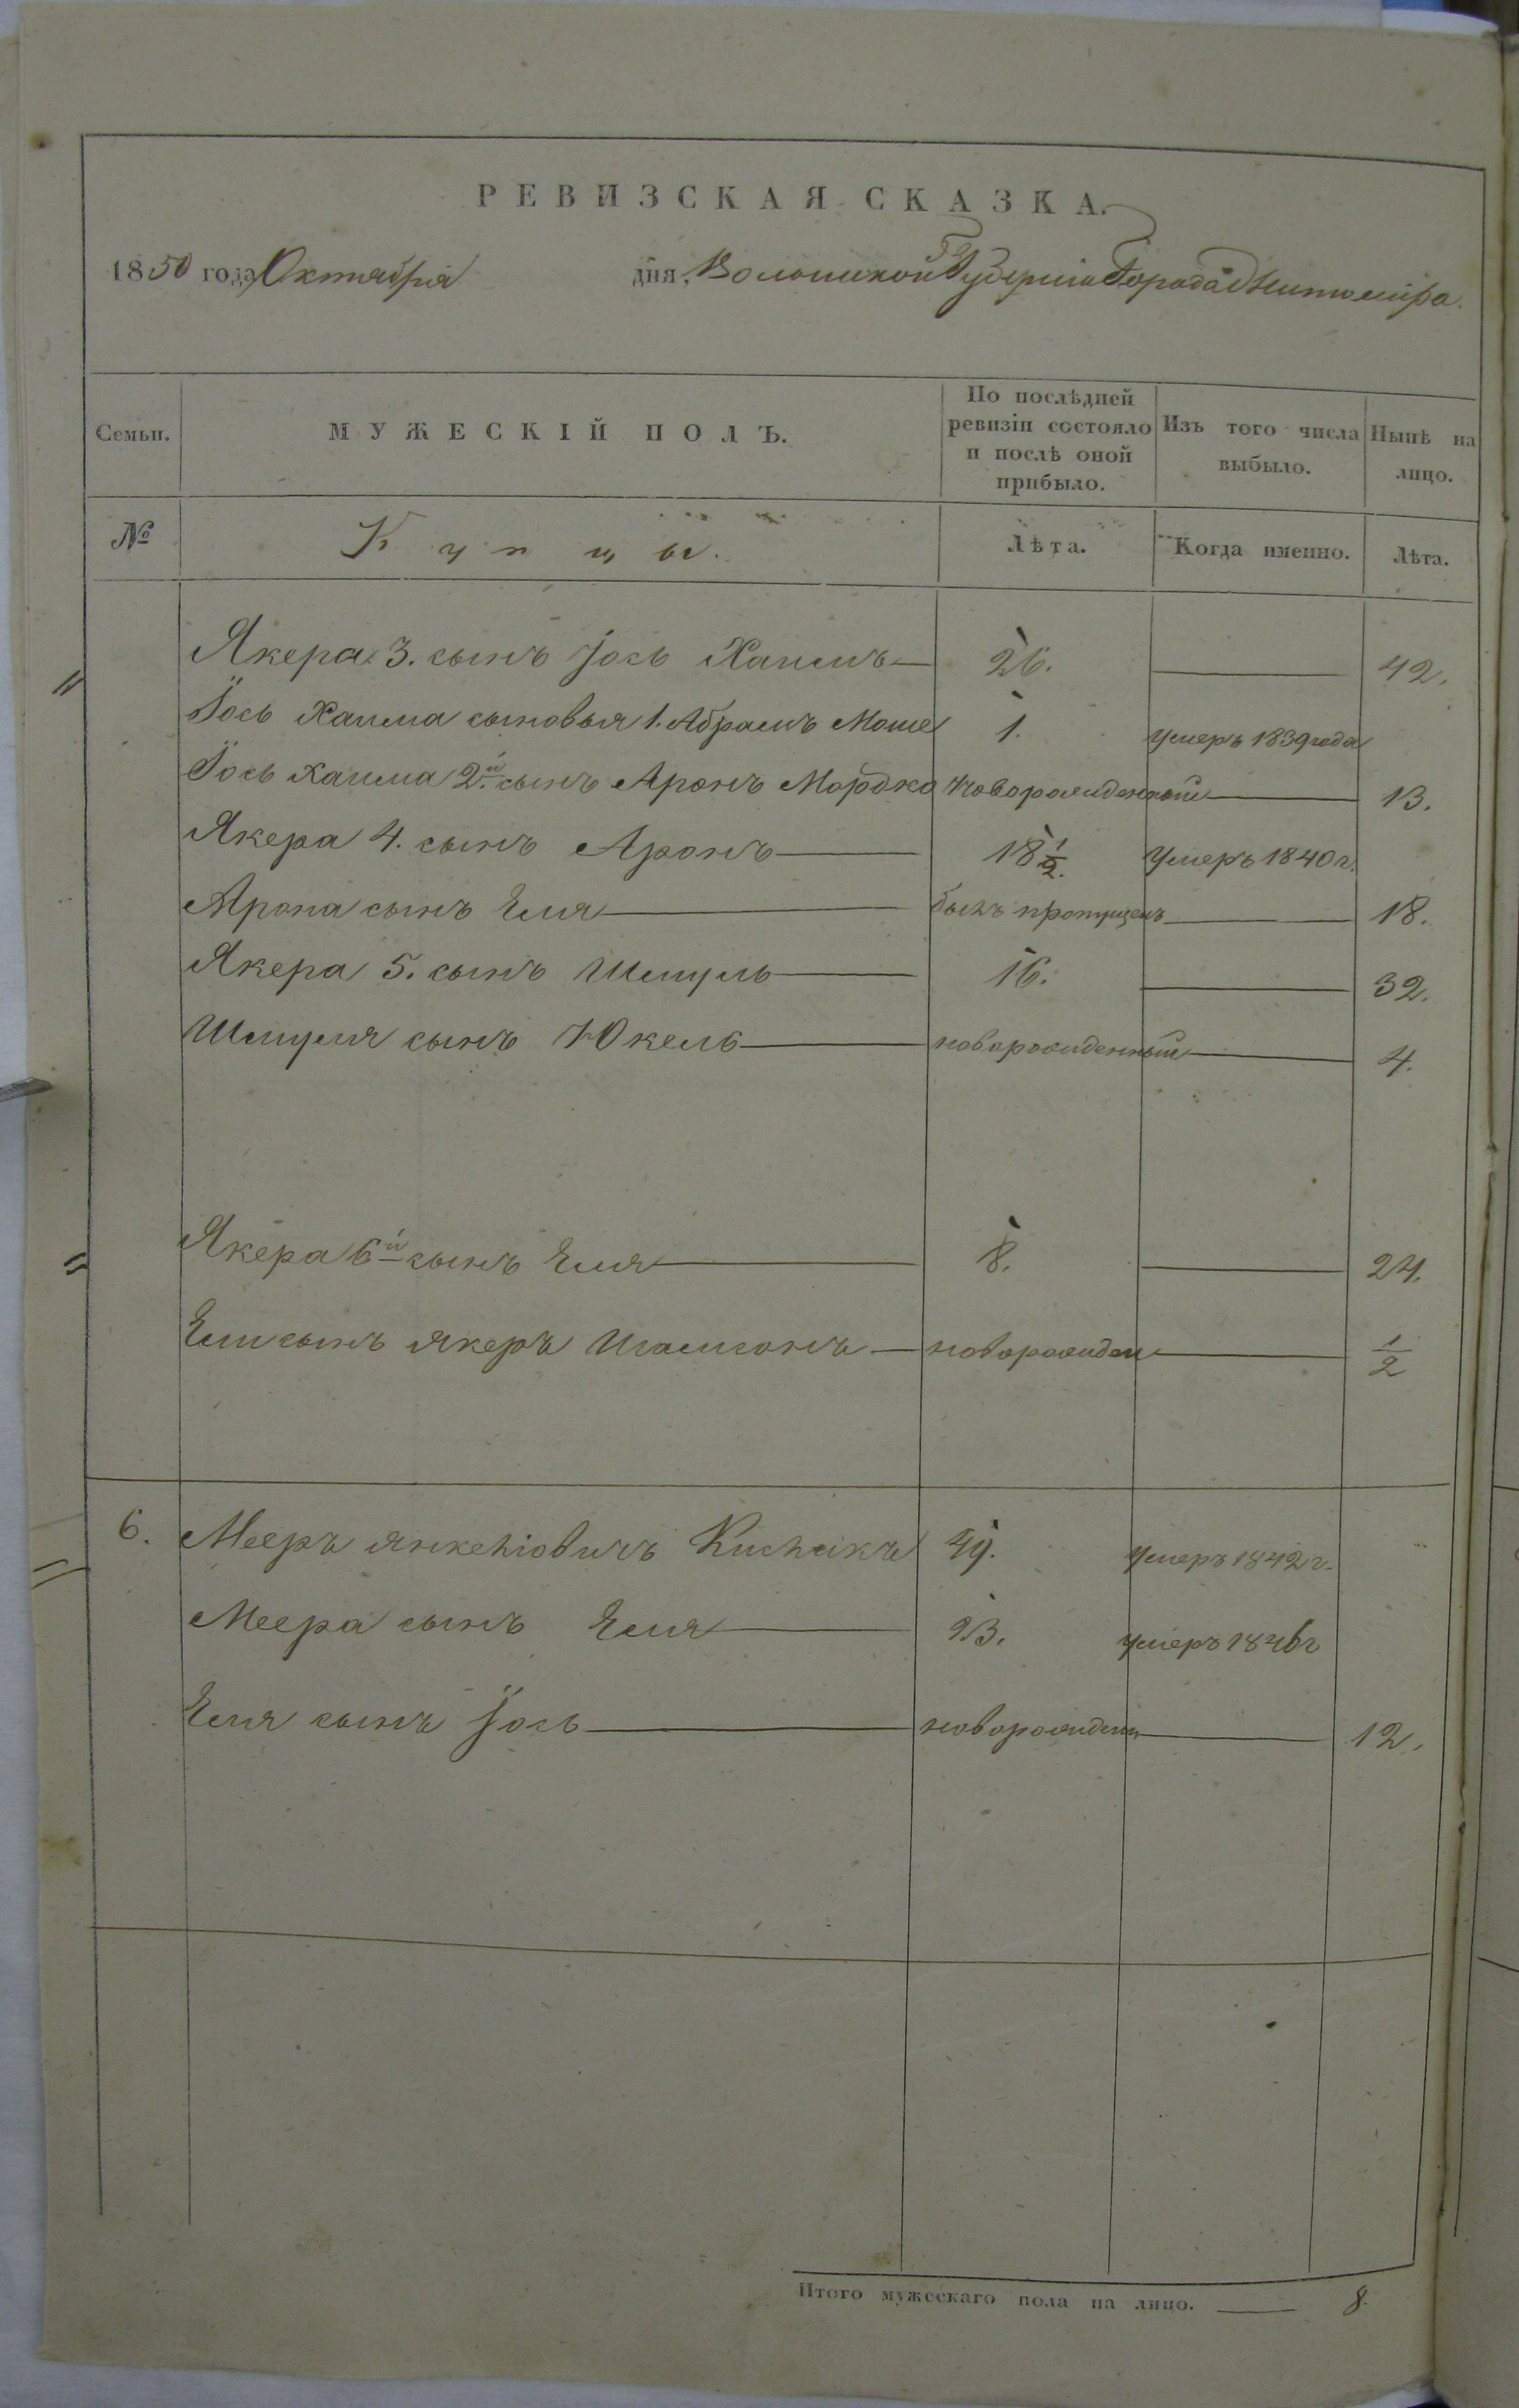 РЕВИЗСКАЯ СКАЗКА.
1850 года Октября дня, Волынской Губерніи Города Житоміра.
Семьи. МУЖЕСКІЙ ПОЛЪ. По послѣдней ревизіи состояло и послѣ оной прибыло. Изъ того числа выбыло. Нынѣ на лицо.
№ Купцы. Лѣта. Когда именно. Лѣта.
Якера 3. сынъ Іось Хаимъ 26. 42.
Іось Хаима сыновья 1. Абрамъ Моше 1. умеръ 1839 года
Іось Хаима 2й сынъ Аронъ Мордко новорожденный 13.
Якера 4. сынъ Аронъ 18 1/2. Умеръ 1840 г.
Арона сынъ Еля былъ пропущенъ 18.
Якера 5. сынъ Шмуль 16. 32.
Шмуля сынъ Юкель новорожденный 4.
Якера 6й сынъ Еля 8. 24.
Ели сынъ Якеръ Шамсонъ новорожден 1/2
6. Мееръ Янкеліовичъ 49. умеръ 1842 г.
Меера сынъ Еля 23. умеръ 1846 г
Еля сынъ Іось новорожден 12.
Итого мужескаго пола на лицо. 8.